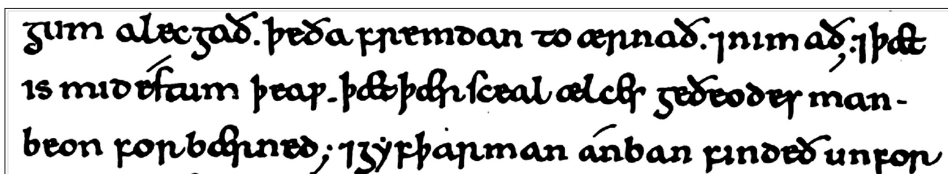 gum alecgað. þe ða fremdan to ærnað. ⁊ nimað; ⁊ þæt
is mid éstum þeaƿ. þæt þær sceal ælces geðeodes man-
beon forbærned; ⁊ gẏf þar man án ban findeð unfor